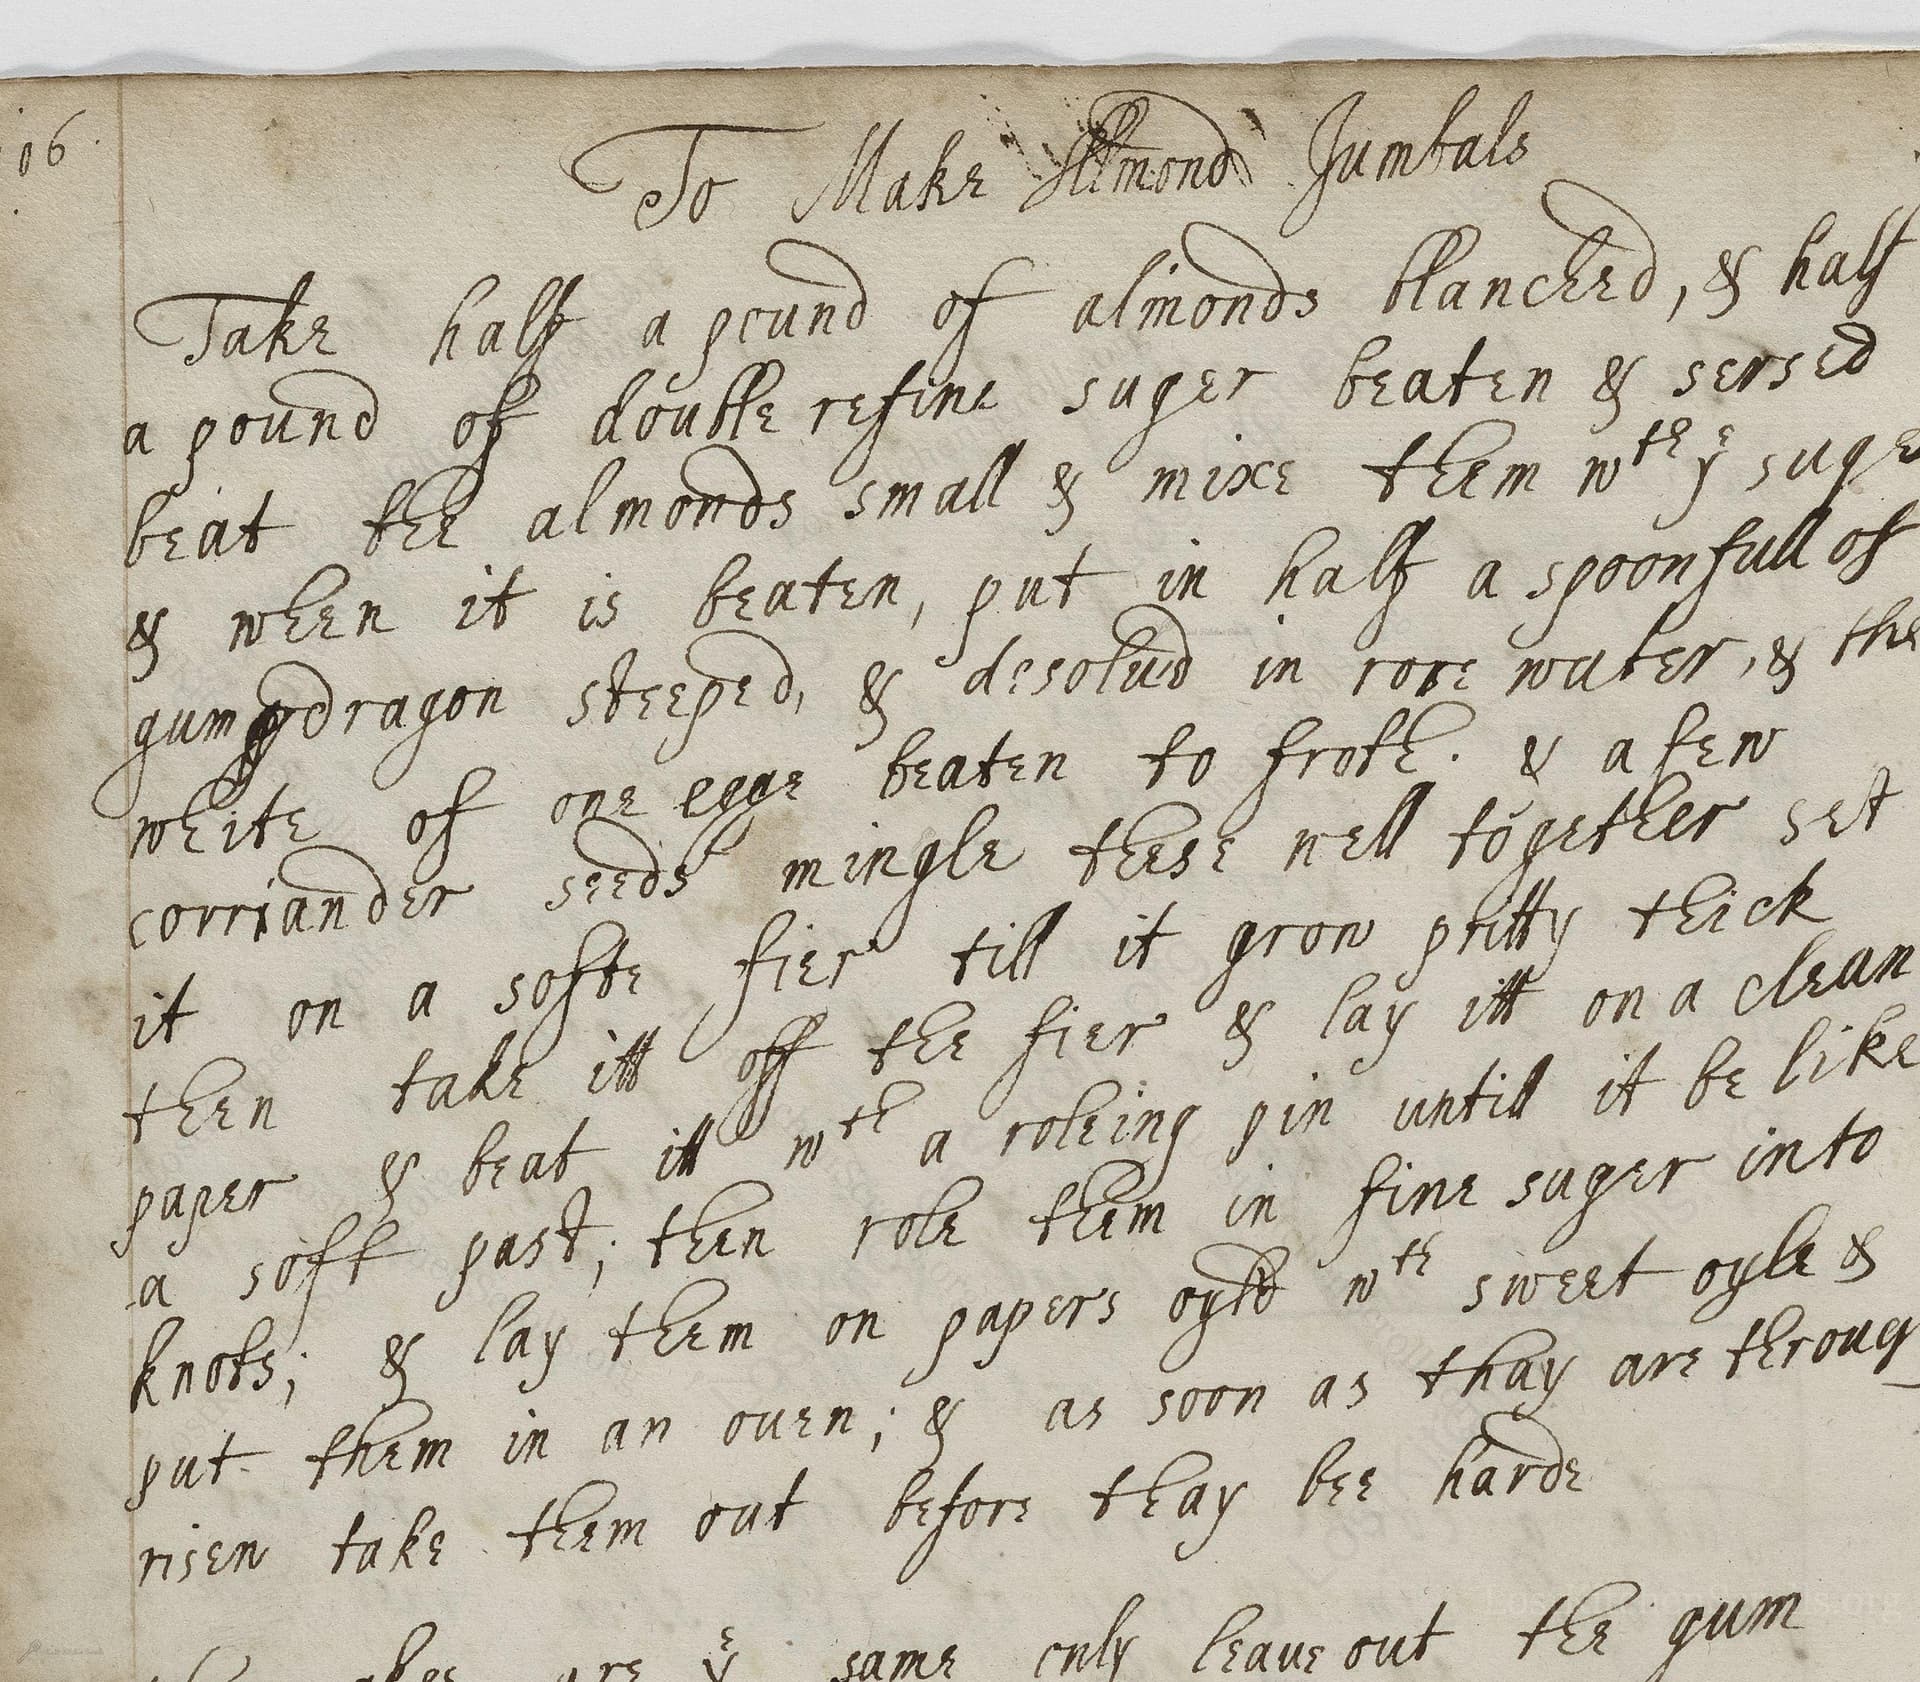 06
To Make Allmond Jumbals
Take half a pound of almonds blanched, & half
a pound of double refine suger beaten & sersed
beat the almonds small & mixe them wth ye suge
& when it is beaten, put in half a spoonfull of
gum dragon steeped, & desolud in rose water, & the
white of one egge beaten to froth. & a few
corriander seeds mingle these well together set
it on a softe fier till it grow pritty thick
then take itt off the fier & lay itt on a clean
paper & beat itt wth a roleing pin untill it be like
a soft past; then role them in fine suger into
knots; & lay them on papers oyld wth sweet oyle &
put them in an ouen; & as soon as thay are throug
risen take them out before thay bee harde
are ye same only leaue out the gum